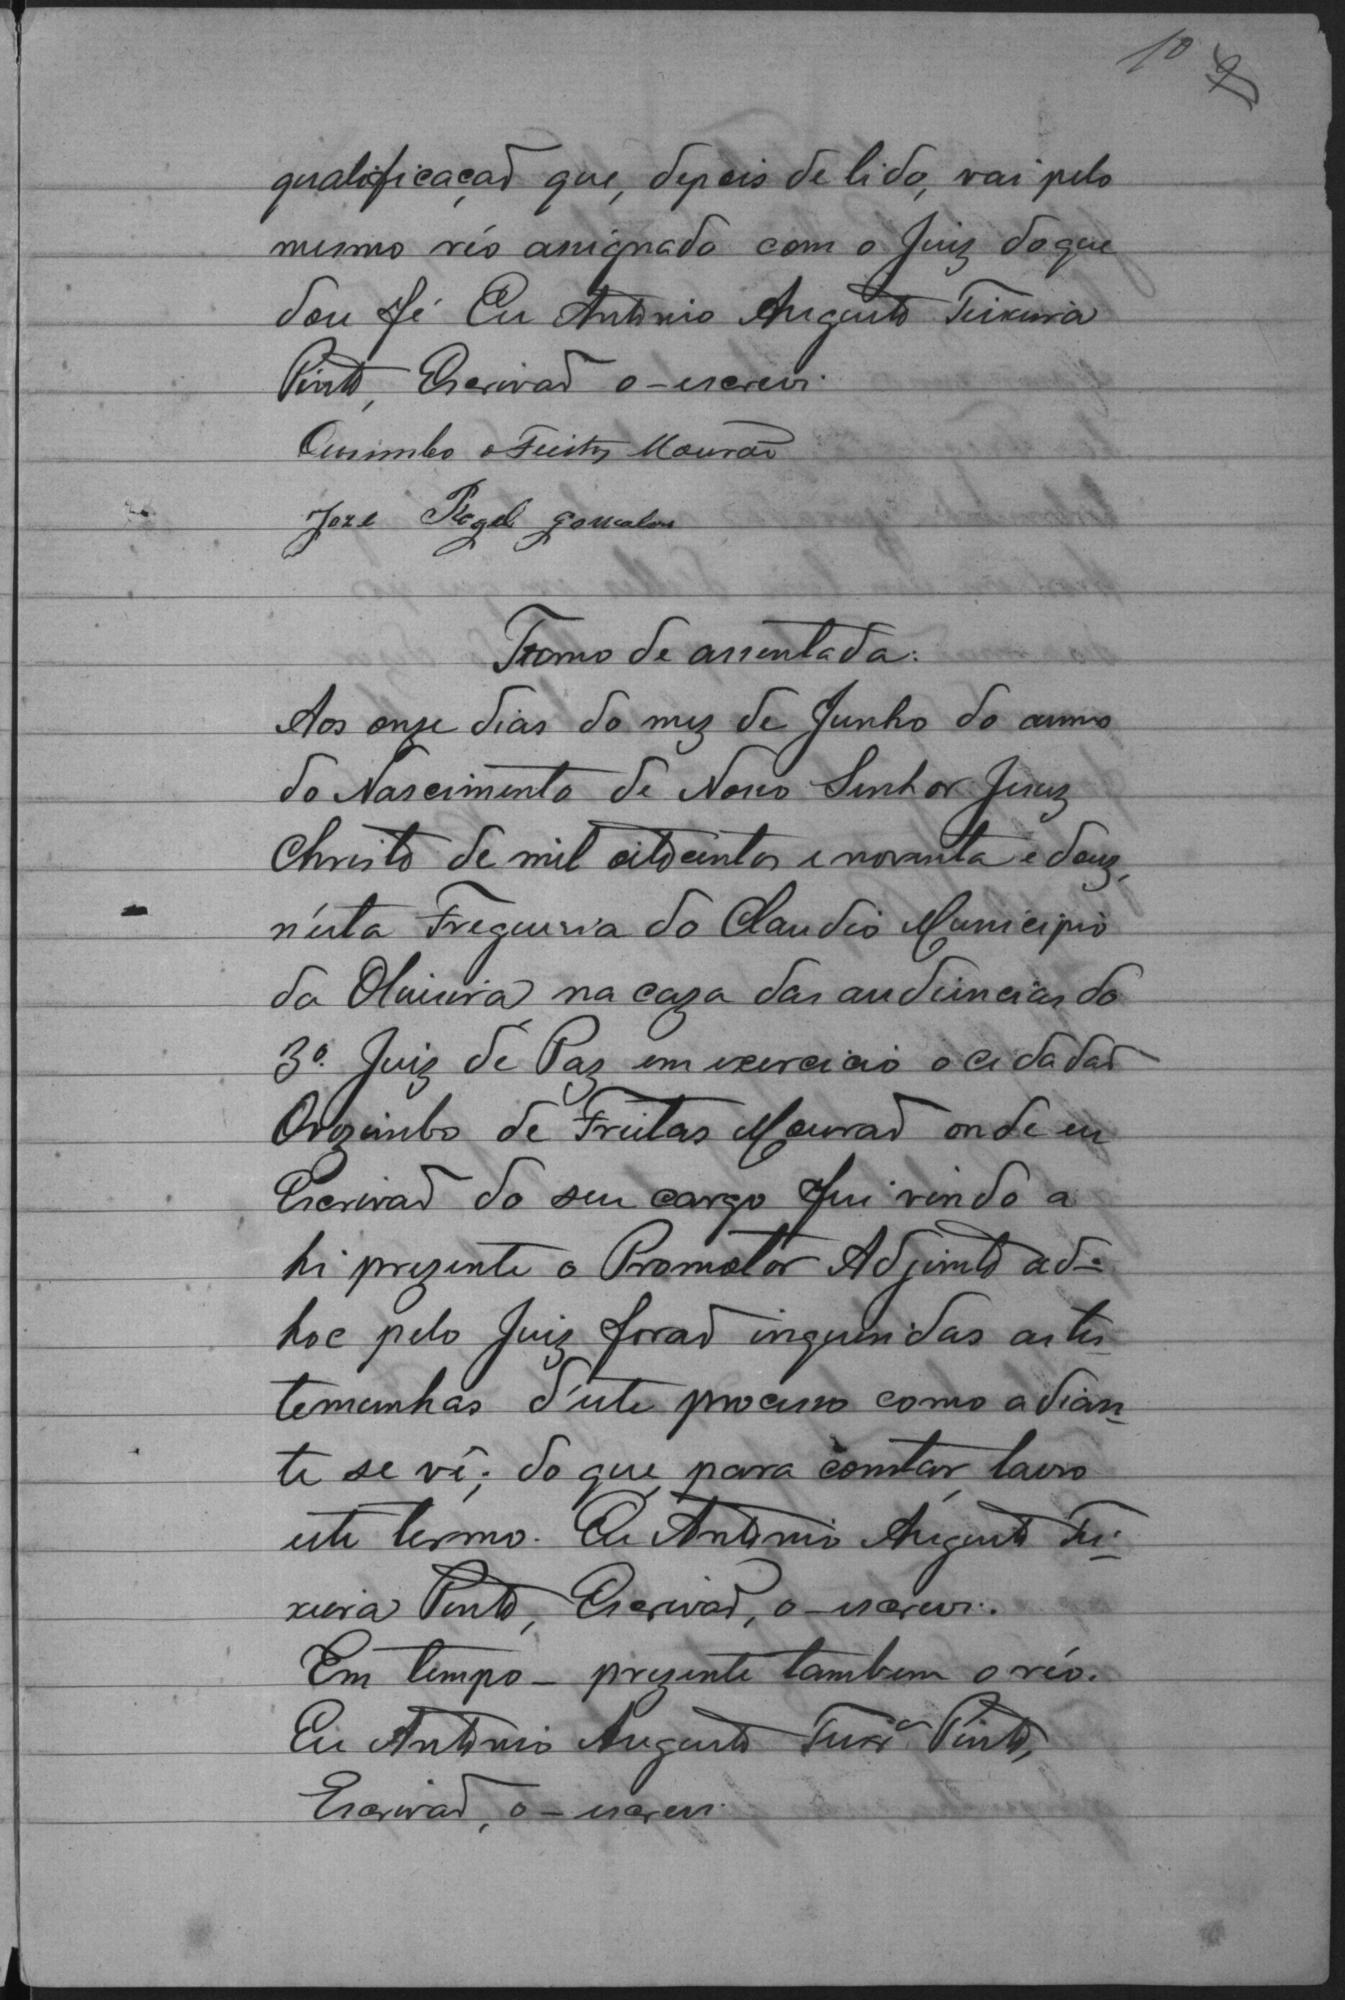 10
qualificaçaõ que, depois de lido, vai pelo
mesmo réo assignado com o Juiz do que
dou fé Eu Antonio Augusto Teixeira
Pinto, Escrivaõ o-escrevi.
Ourimbo de Freitas Mourão
Joze Rogel gonsalves
Termo de assentada.
Aos onze dias do mez de Junho do anno
do Nascimento de Nosso Senhor Jesuz
Christo de mil oitocentos e noventa e douz,
n'ésta Freguesia do Claudio Municipio
da Oliveira, na caza das audiencias do
3º Juiz de Paz em exercicio o cidadaõ
Orozimbo de Freitas Mouraõ onde eu
Escrivaõ do seu cargo fui vindo a
hi prezente o Promotor Adjunto ad=
hoc pelo Juiz foraõ inqueridas as tes
temunhas d'éste processo como adian
te se vê; do que, para constar, lavro
este termo. Eu Antonio Augusto Tei-
xeira Pinto, Escrivaõ, o-escrevi.
Em tempo - prezente tambem o réo.
Eu Antonio Augusto Teixrª Pinto,
Escrivaõ, o-escrevi.